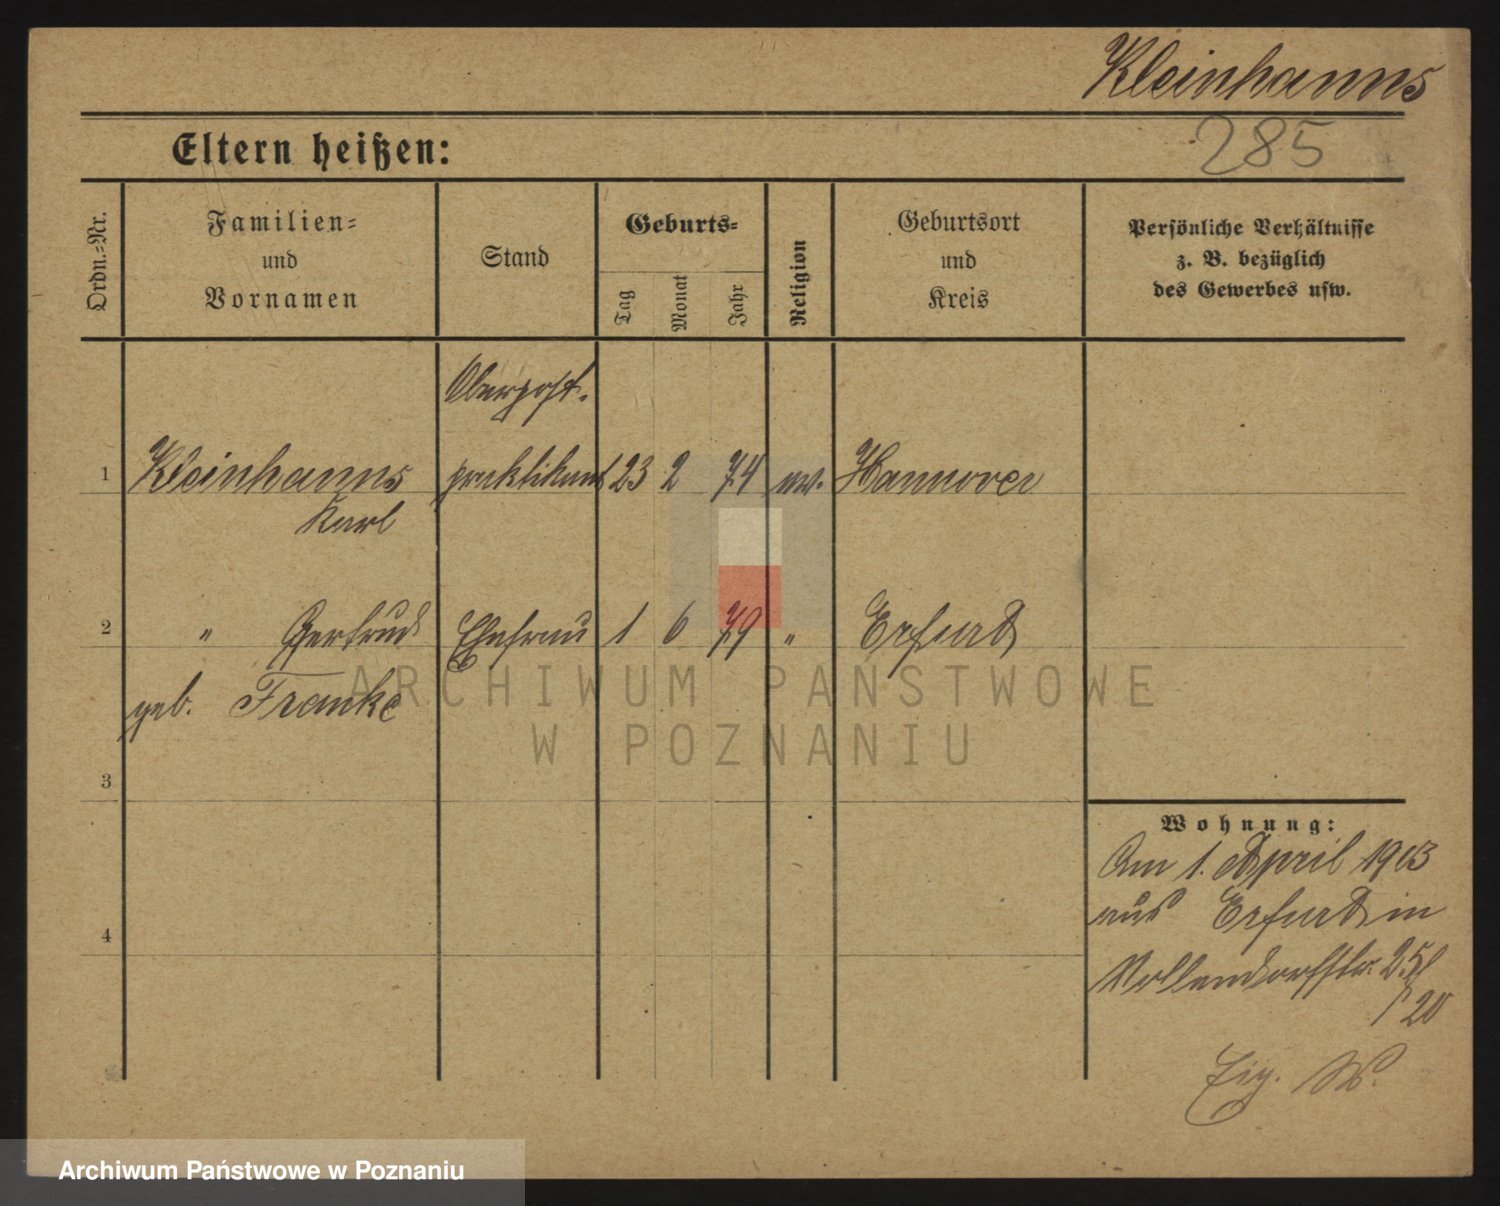 Kleinhanns
285
Eltern heißen:
Ordn.-Nr.
Familien-
und
Vornamen
Stand
Geburts-
Tag
Monat
Jahr
Religion
Geburtsort
und
Kreis
Persönliche Verhältnisse
z. B. bezüglich
des Gewerbes usw.
Oberpost-
1 Kleinhanns praktikant 23 2 74 ev. Hannover
Karl
2 " Gertrud Ehefrau 1 6 79 " Erfurt
geb. Francke
3
4
Wohnung:
Am 1. April 1903
aus Erfurt in
25/
20
Eig. W.
ARCHIWUM PAŃSTWOWE
W POZNANIU
Archiwum Państwowe w Poznaniu